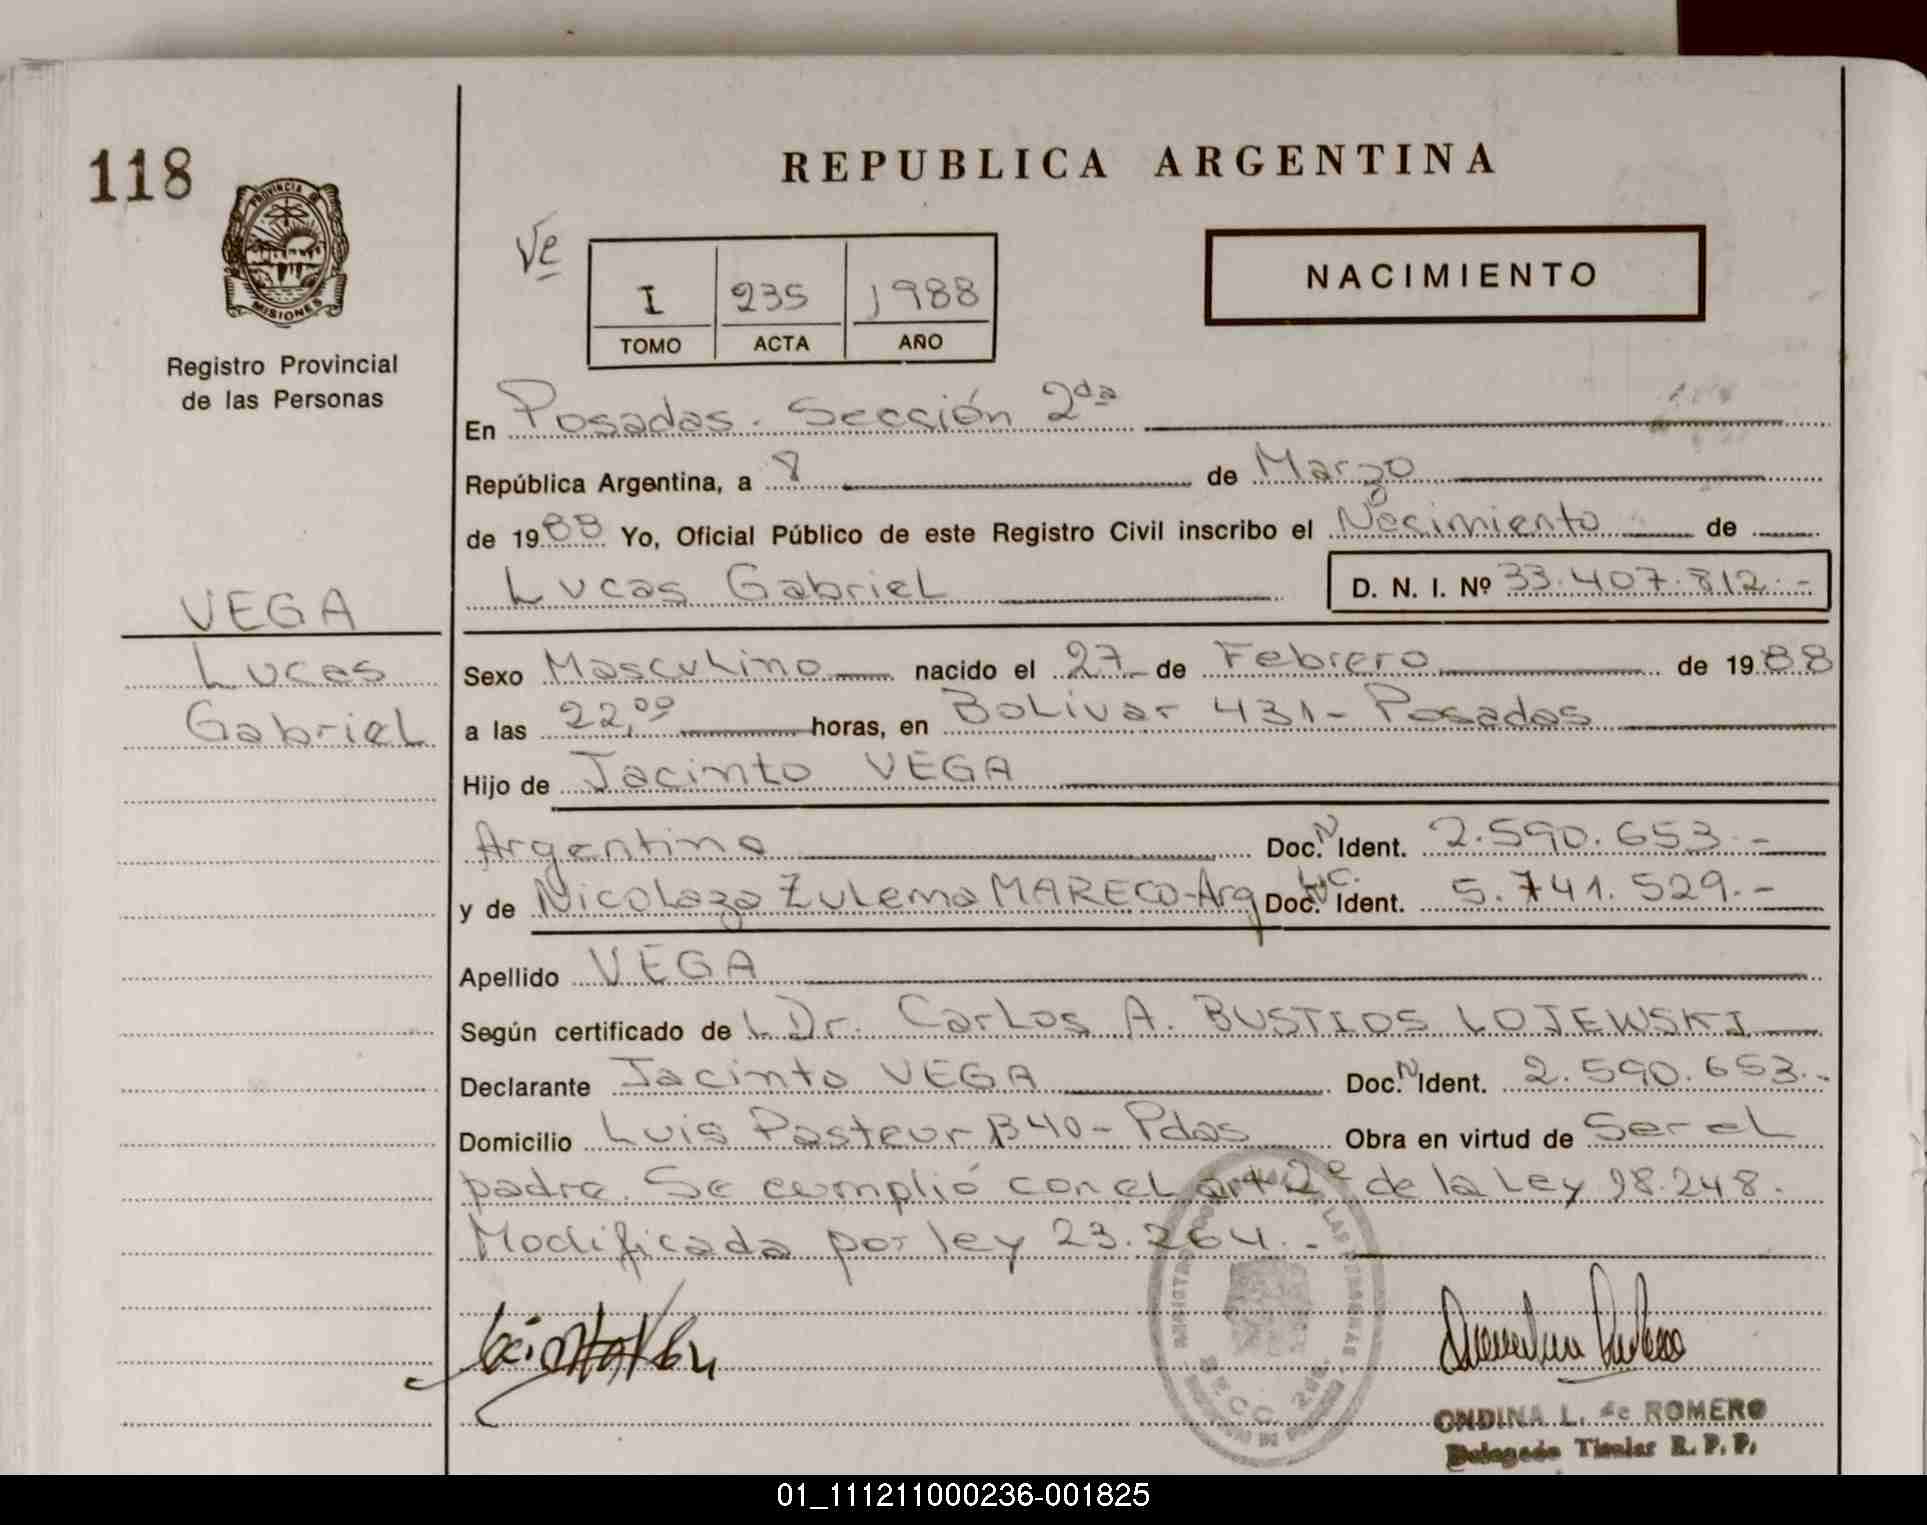 118
PROVINCIA DE
MISIONES
Registro Provincial
de las Personas
REPUBLICA ARGENTINA
Ve
I 235 1988
TOMO ACTA AÑO
NACIMIENTO
En Posadas. Sección 2da
República Argentina, a 8 de Marzo
de 1988 Yo, Oficial Público de este Registro Civil inscribo el Nacimiento de
Lucas Gabriel D. N. I. Nº 33.407.812.-
VEGA
Lucas
Gabriel
Sexo Masculino nacido el 27 de Febrero de 1988
a las 22,00 horas, en Bolivar 431- Posadas
Hijo de Jacinto VEGA
Argentino Doc. N Ident. 2.590.653.-
y de Nicolaza Zulema MARECO-Arg Doc. Ident. L.C. 5.741.529.-
Apellido VEGA
Según certificado de L Dr. Carlos A. BUSTIOS LOJEWSKI
Declarante Jacinto VEGA Doc. N Ident. 2.590.653.-
Domicilio Luis Pasteur B40- Pdas Obra en virtud de Ser el
padre. Se cumplió con el art 2º de la Ley 18.248.
Modificada por ley 23.264.-
ONDINA L. de ROMERO
Delegado Titular R. P. P.
01_111211000236-001825